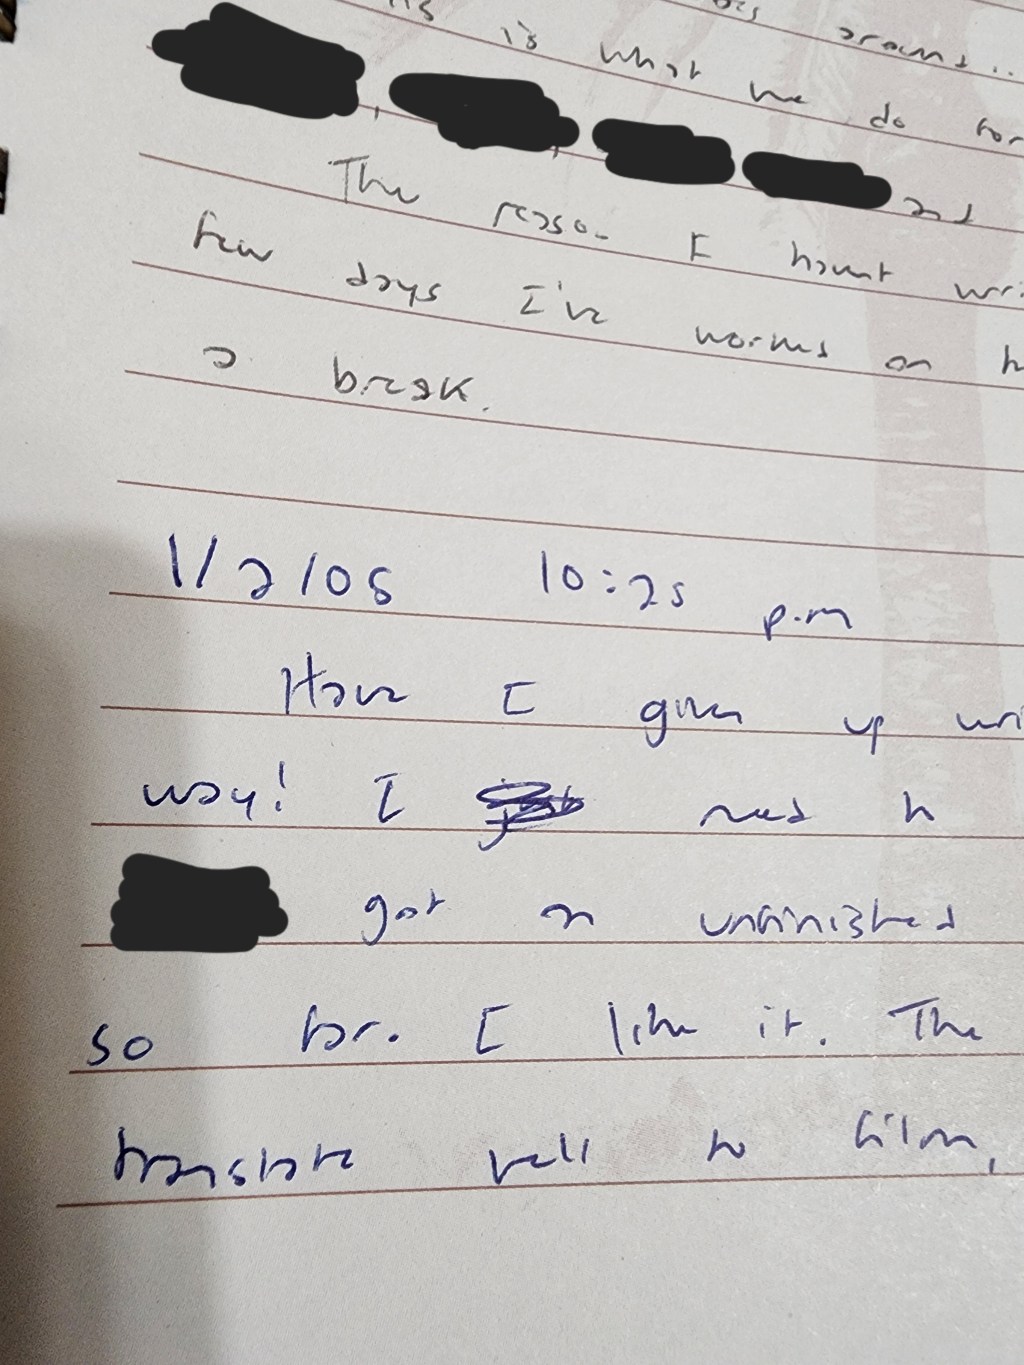 is what we do for
and
The reason I havnt wri
few days I've
a break.
1/2/05 10:25 p.m
Have I given up wri
way! I need
got an unfinished
so far. I like it. The
translate well to film,